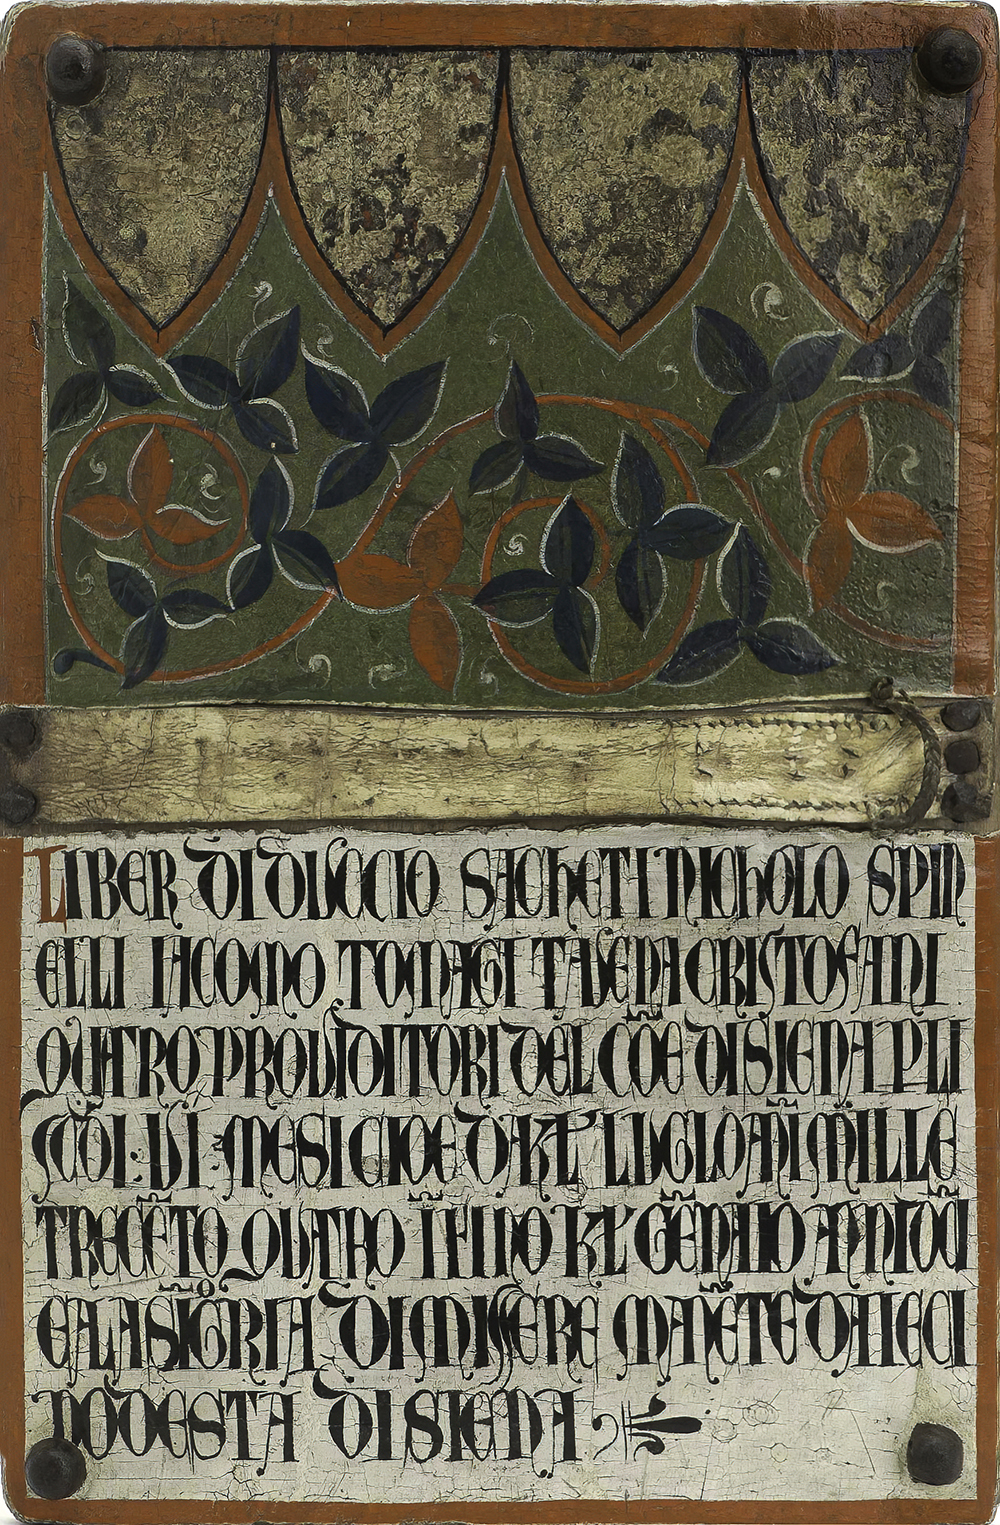 LIBER DI DUCCIO SACHETI NICHOLO SPIN
ELLI IACOMO TOMAGI TAVENA CRISTOFANI
QUATRO PROVIDITORI DEL CŌE DI SIENA P LI
SCŌI VI MESI CIOE DA KL LUGLO ĀNI MILLE
TRECĒTO QUATRO INFINO KL GĒNAIO
E LA SIGŌRIA DI MISSERE MANĒTE DA IECI
PODESTA DI SIENA